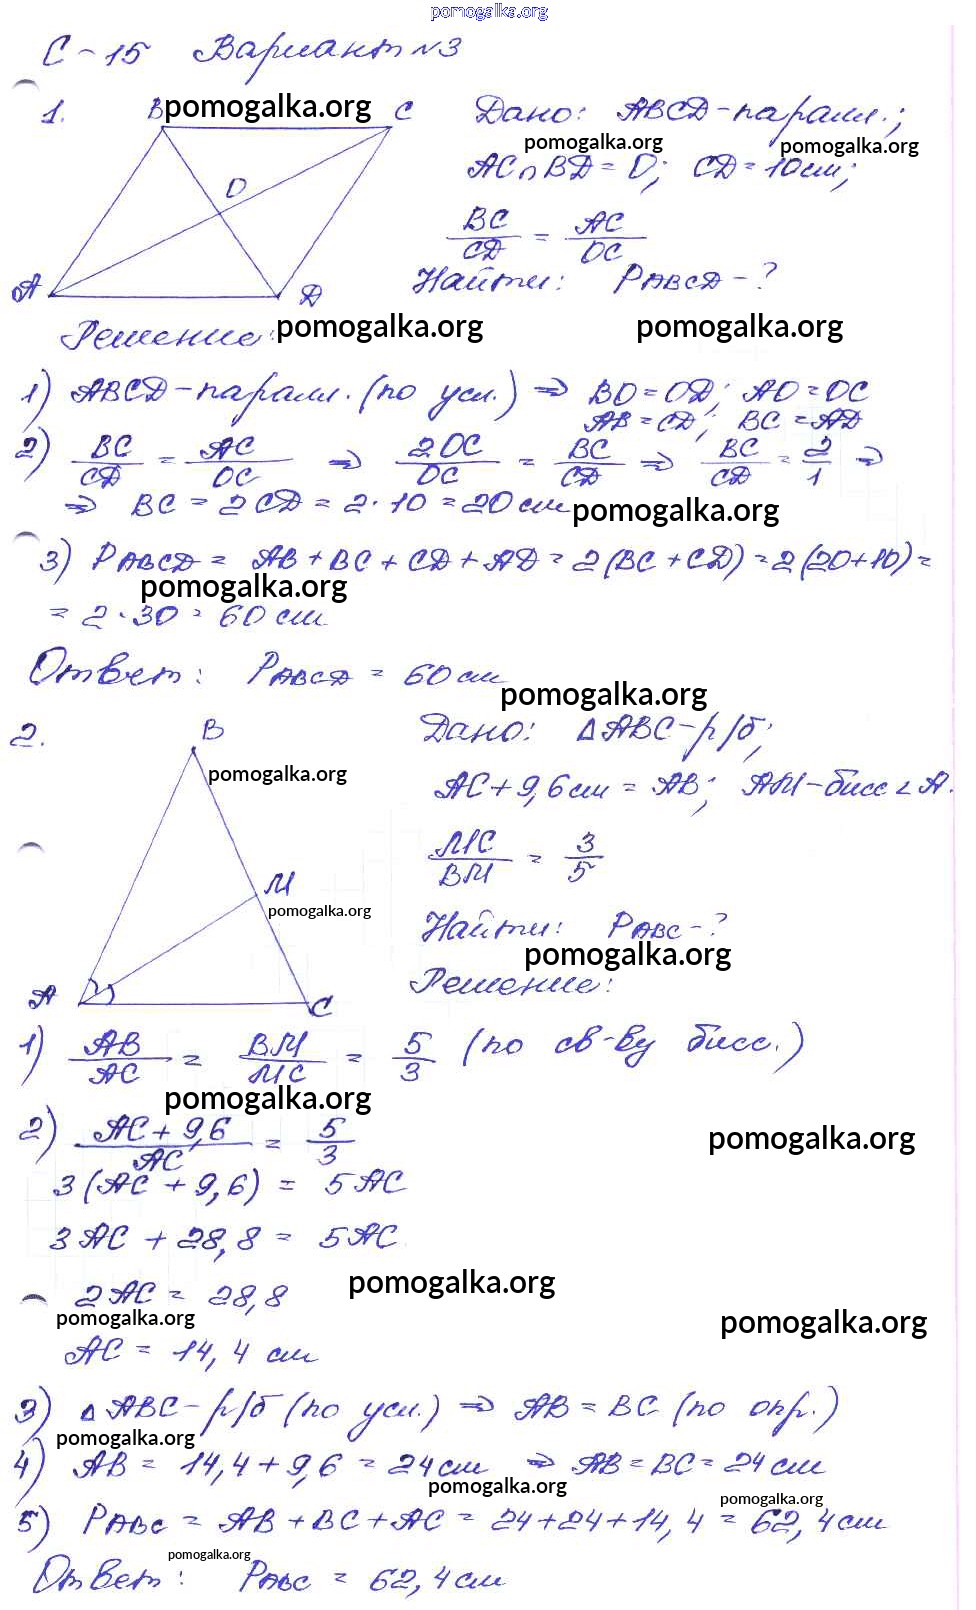 pomogalka.org
С-15 Вариант №3
1.
B pomogalka.org C
Дано: ABCD-паралл.;
pomogalka.org pomogalka.org
AC∩BD=O; CD=10см;
O
BC/CD = AC/OC
A D
Найти: PABCD-?
Решение: pomogalka.org pomogalka.org
1) ABCD-паралл. (по усл.) ⇒ BO=OD; AO=OC
AB=CD; BC=AD
2) BC/CD = AC/OC ⇒ 2OC/OC = BC/CD ⇒ BC/CD = 2/1 ⇒
⇒ BC = 2CD = 2·10 = 20 см pomogalka.org
3) PABCD = AB+BC+CD+AD = 2(BC+CD) = 2(20+10) =
pomogalka.org
= 2·30 = 60 см
Ответ: PABCD = 60 см
pomogalka.org
2.
B
Дано: ΔABC-р/б;
pomogalka.org
AC+9,6см = AB; AM-бисс ∠A.
MC/BM = 3/5
M
pomogalka.org
Найти: PABC-?
pomogalka.org
A C
Решение:
1) AB/AC = BM/MC = 5/3 (по св-ву бисс.)
pomogalka.org
2) AC+9,6/AC = 5/3
pomogalka.org
3(AC+9,6) = 5AC
3AC+28,8 = 5AC
pomogalka.org
2AC = 28,8
pomogalka.org pomogalka.org
AC = 14,4 см
3) ΔABC-р/б (по усл.) ⇒ AB=BC (по опр.)
pomogalka.org
4) AB = 14,4+9,6 = 24см ⇒ AB=BC=24см
pomogalka.org pomogalka.org
5) PABC = AB+BC+AC = 24+24+14,4 = 62,4см
pomogalka.org
Ответ: PABC = 62,4см